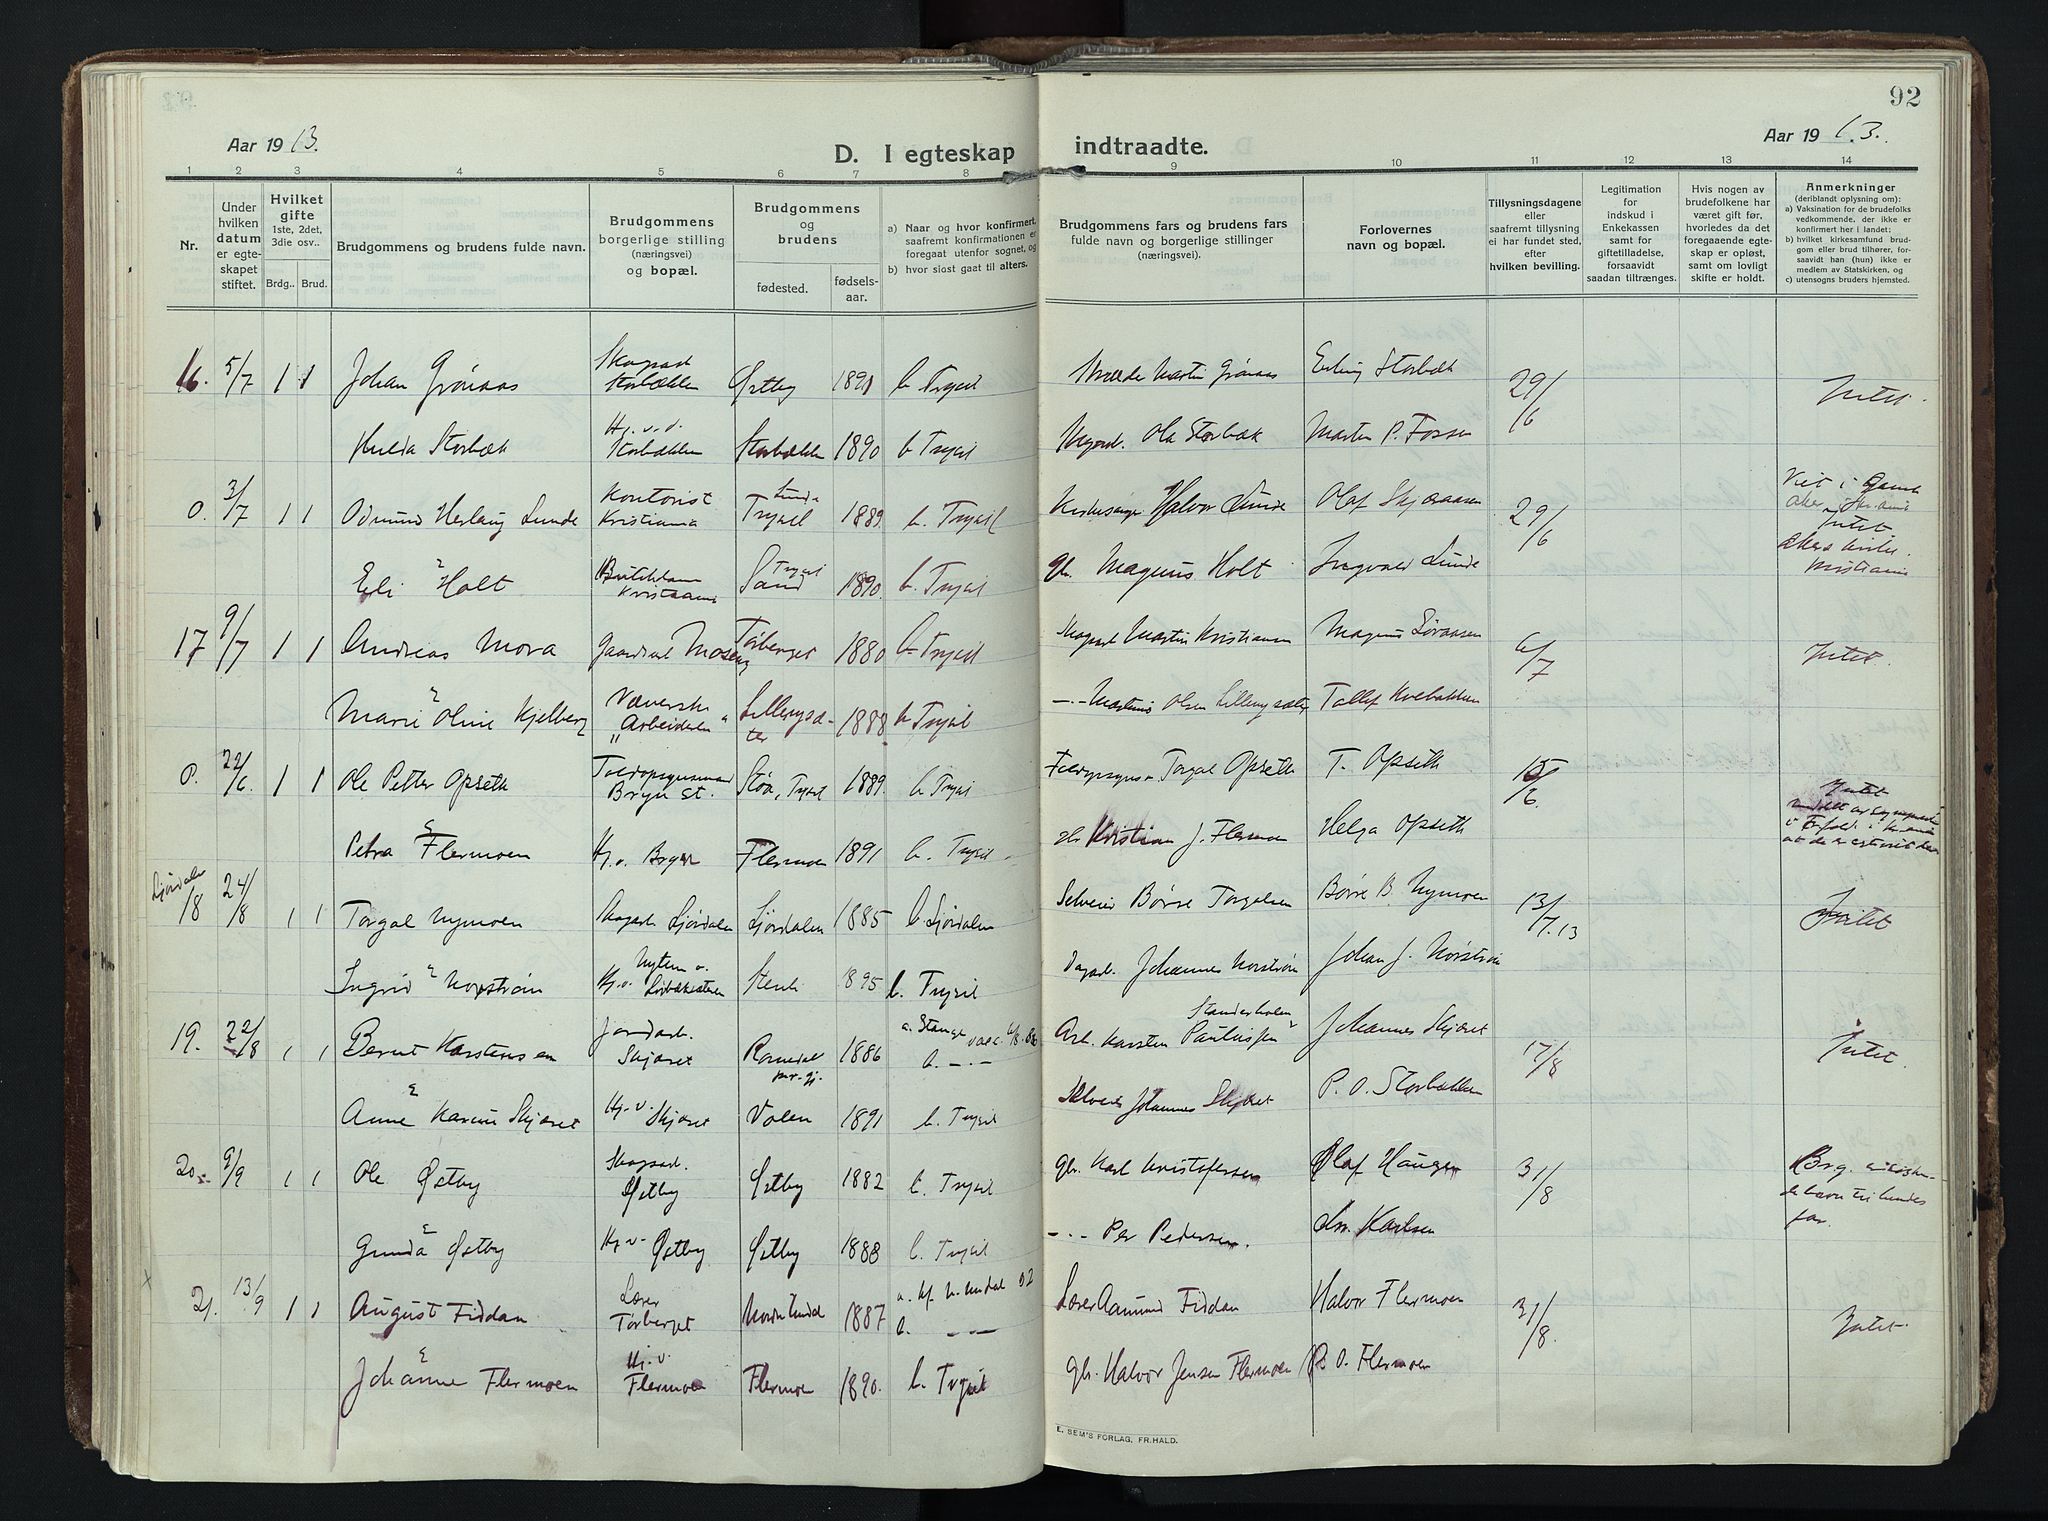 92
Aar 1913.
D. I egteskap indtraadte.
Aar 1913.
1 2 3 4 5 6 7 8 9 10 11 12 13 14
Nr.
Under hvilken datum er egteskapet stiftet.
Hvilket gifte 1ste, 2det, 3die osv..
Brdg.. Brud.
Brudgommens og brudens fulde navn.
Brudgommens borgerlige stilling (næringsvei) og bopæl.
Brudgommens og brudens
fødested.
fødselsaar.
a) Naar og hvor konfirmert, saafremt konfirmationen er foregaat utenfor sognet, og
b) hvor sidst gaat til alters.
Brudgommens fars og brudens fars fulde navn og borgerlige stillinger (næringsvei).
Forlovernes navn og bopæl.
Tillysningsdagene eller saafremt tillysning ei har fundet sted, efter hvilken bevilling.
Legitimation for indskud i Enkekassen samt for giftetilladelse, forsaavidt saadan tiltrænges.
Hvis nogen av brudefolkene har været gift før, hvorledes da det foregaaende egteskap er opløst, samt om lovligt skifte er holdt.
Anmerkninger (deriblandt oplysning om): a) Vaksination for de brudefolks vedkommende, der ikke er konfirmert her i landet; b) hvilket kirkesamfund brudgom eller brud tilhører, forsaavidt han (hun) ikke er medlem av Statskirken, og c) utensogns bruders hjemsted.
16. 5/7 1 1 Johan Grönaas Skogsarb. Storbækken Østby 1891 b Trysil Martin Grönaas Erling Storbæk 29/6 Intet.
Hulda Storbæk Hj. v. d. Storbækken Storbækken 1890 b Trysil Ola Storbæk Marten P. Fossen
0. 3/7 1 1 Odmund Herlaug Lunde Kontorist Kristiania Lunde Trysil 1889. b. Trysil Kirkesanger Halvor Lunde Olaf Skjæraasen 29/6 Viet i Gamle Akers Intet Akers kirke. Kristiania
Eli Holt Kristiania Sand Trysil 1890. b. Trysil gbr. Magnus Holt Ingvald Lunde
17 9/7 1 1 Andreas Mora Moseng Törberget 1880 b Trysil Skogsarb Martin Kristiansen Magnus Söraasen 6/7 Intet.
Marie Oline Kjelberg Væverske "Arbeideren" Lillerysæter 1888 b Trysil -.- Martinus Olsen Lillerysæter Tollef Kvebakken
0. 22/6 1 1 Ole Petter Opseth Bryn st. Støa, Trysil 1889. b Trysil Torgal Opseth T. Opseth 15/6. Intet
Petra Flermoen Hj. v. Flermoen 1891 b. Trysil Kristian J. Flermoen Helga Opseth
Ljördalen
18 24/8 1 1 Torgal Nymoen Skogsarb. Ljördalen Ljördalen 1885 b Ljördalen Selveier Börre Torgalsen Börre B. Nymoen 13/7.13 Intet
Ingrid Norström Hj. v. Stenli 1895 b. Trysil Dagarb. Johannes Norström Johan J. Norström
19. 22/8 1 1 Bernt Karstensen Jordarb. Skjæret Romedal 1886 a. Stange b. -.- Arb. Karsten Paulussen Johannes Skjæret 17/8 Intet.
Anne Karine Skjæret Hj. v. Skjæret Volen 1891 b. Trysil Selveier Johannes Skjæret P. O. Storbækken
20. 9/9 1 1 Ole Østby Skogsarb. Østby Østby 1882 b. Trysil gbr. Karl Kristofersen Olaf Haugen 31/8 Brg.
Gunda Østby Hj. v. Østby Østby 1888 b. Trysil -.- Per Pedersen. Karlsen
21. 13/9 1 1 August Fiddan Lærer Törberget 1887 b. -.- Lærer Aamund Fiddan Halvor Flermoen 31/8. Intet.
Johanne Flermoen Hj. v. Flermoen Flermoen 1890. b. Trysil gbr. Halvor Jensen Flermoen O. Flermoen
E. SEM'S FORLAG, FR.HALD.